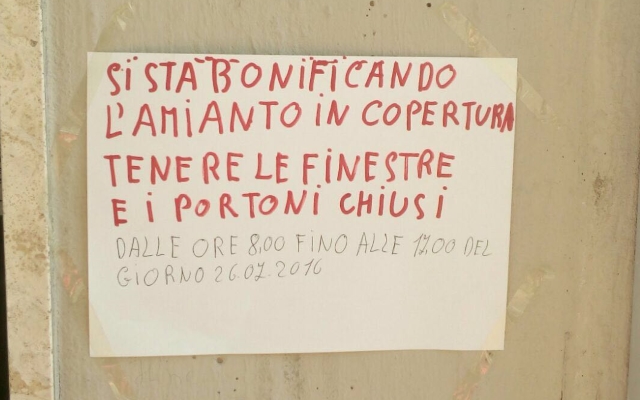 SI STA BONIFICANDO
L'AMIANTO IN COPERTURA
TENERE LE FINESTRE
E I PORTONI CHIUSI
DALLE ORE 8,00 FINO ALLE 17,00 DEL
GIORNO 26.07.2016